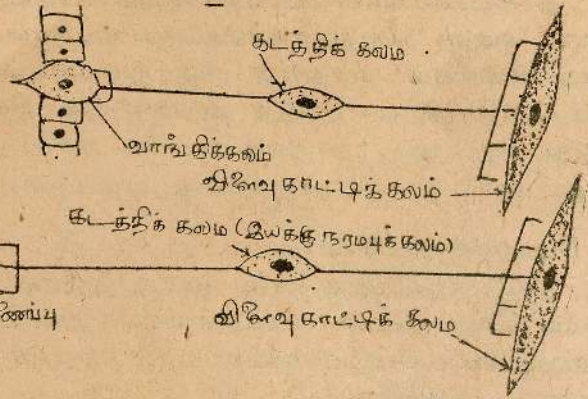 கடத்திக் கலம
வாங்கிக்கலம்
விளைவுகாட்டிக் கலம்
கடத்திக் கலம (இயக்கு நரமபுக்கலம்)
ணைப்பு
விளைவுகாட்டிக் கலம